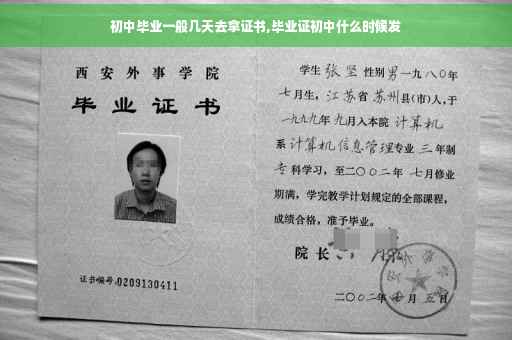 初中毕业一般几天去拿证书,毕业证初中什么时候发
西安外事学院
毕业证书
证书编号:0209130411
学生张坚性别男一九八〇年
七月生,江苏省苏州县(市)人,于
一九九九年九月入本院计算机
系计算机信息管理专业三年制
专科学习,至二〇〇二年七月修业
期满,学完教学计划规定的全部课程,
成绩合格,准予毕业。
院长
二〇〇二年七月五日